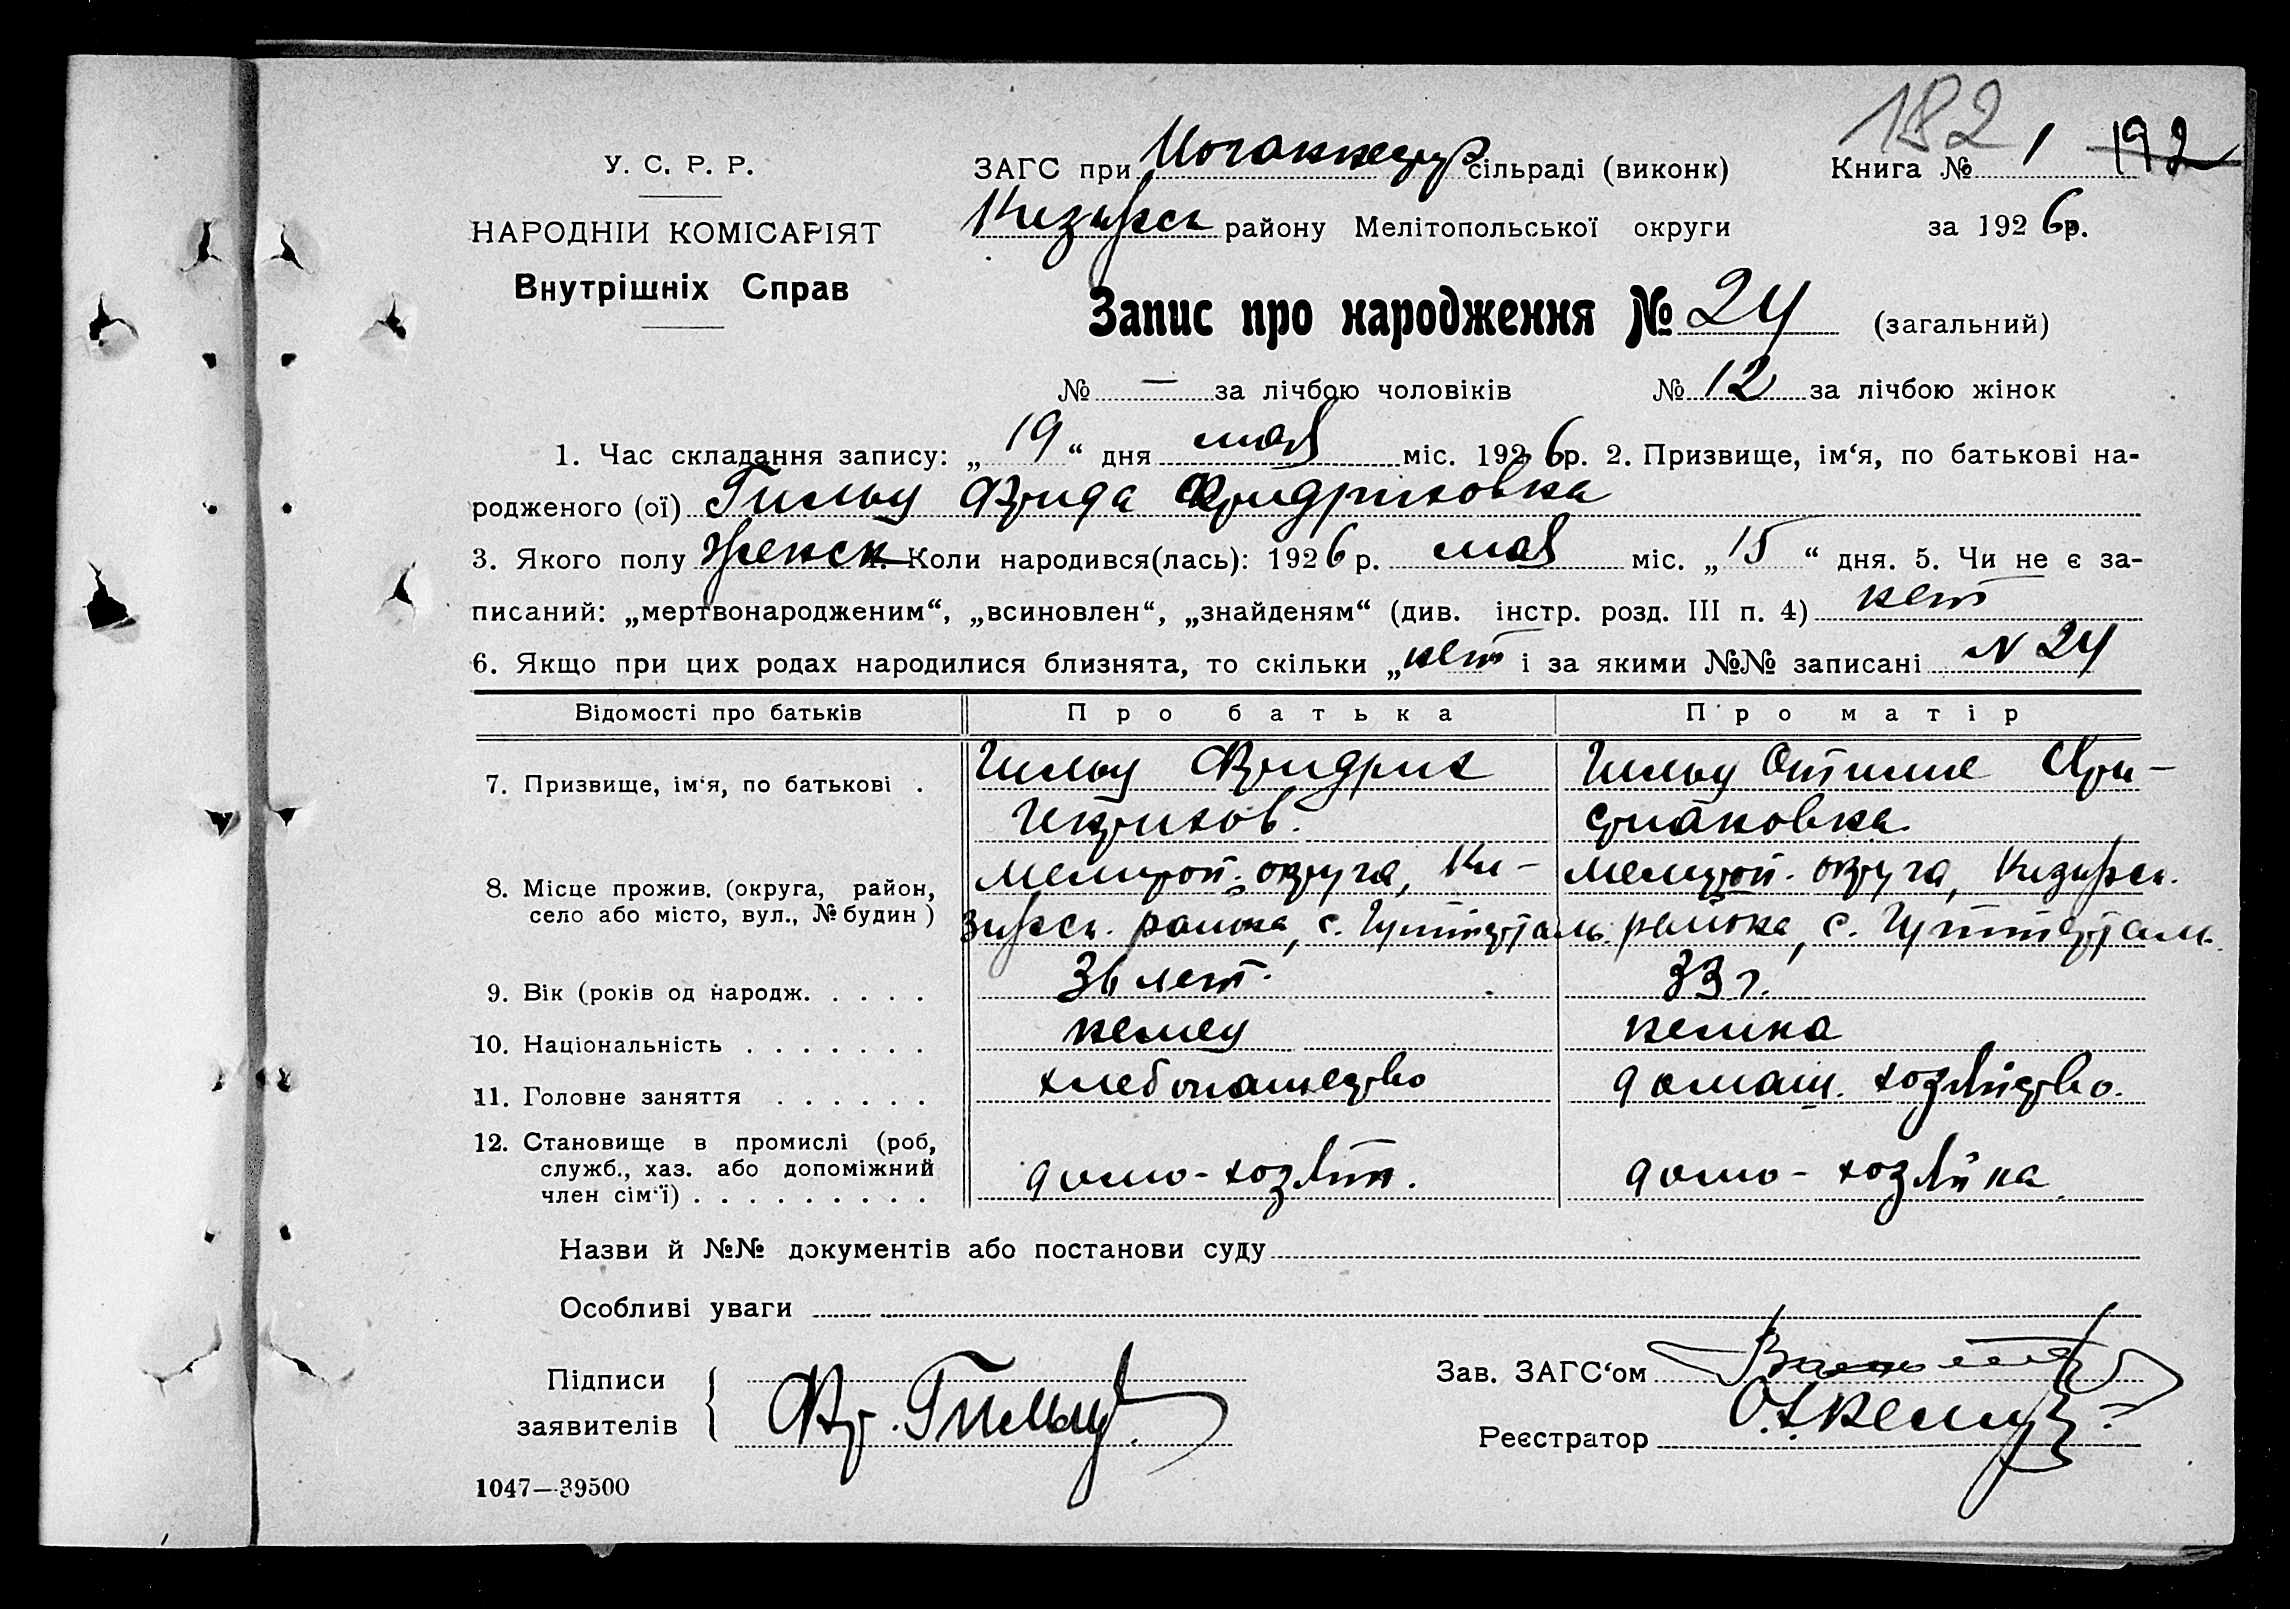 182
У. С. Р. Р.
НАРОДНІЙ КОМІСАРІЯТ
Внутрішніх Справ
ЗАГС при Иоганнеср сільраді (виконк) Книга № 1 192
Кизиярск району Мелітопольської округи за 1926р.
Запис про народження № 24 (загальний)
№ — за лічбою чоловіків № 12 за лічбою жінок
1. Час складання запису: „19“ дня мая міс. 1926р. 2. Призвище, ім‘я, по батькові на-
родженого (ої) Гильц Фрида Фридриховна
3. Якого полу женск 4. Коли народився(лась): 1926р. мая міс. „15“ дня. 5. Чи не є за-
писаний: „мертвонародженим“, „всиновлен“, „знайденям“ (див. інстр. розд. III п. 4) нет
6. Якщо при цих родах народилися близнята, то скільки „нет і за якими №№ записані N 24
Відомості про батьків Про батька Про матір
7. Призвище, ім‘я, по батькові . Гильц Фридрих Гильц Отилие Хри-
Генрихов. стиановна
8. Місце прожив. (округа, район, Мелитоп. округа, Ки- Мелитоп. округа, Кизиярск.
село або місто, вул., № будин) зиярск. района, с. Гуттерталь района, с. Гуттерталь.
9. Вік (років од народж. . . . . 36 лет. 33 г.
10. Національність . . . . . . . немец немка
11. Головне заняття . . . . . . хлебопашество домаш. хозяйство.
12. Становище в промислі (роб,
служб., хаз. або допоміжний домо-хозяин. домо-хозяйка
член сім‘ї) . . . . . . . . .
Назви й №№ документів або постанови суду
Особливі уваги
Підписи
заявителів Фр. Гильц
Зав. ЗАГС‘ом
Реєстратор
1047—39500